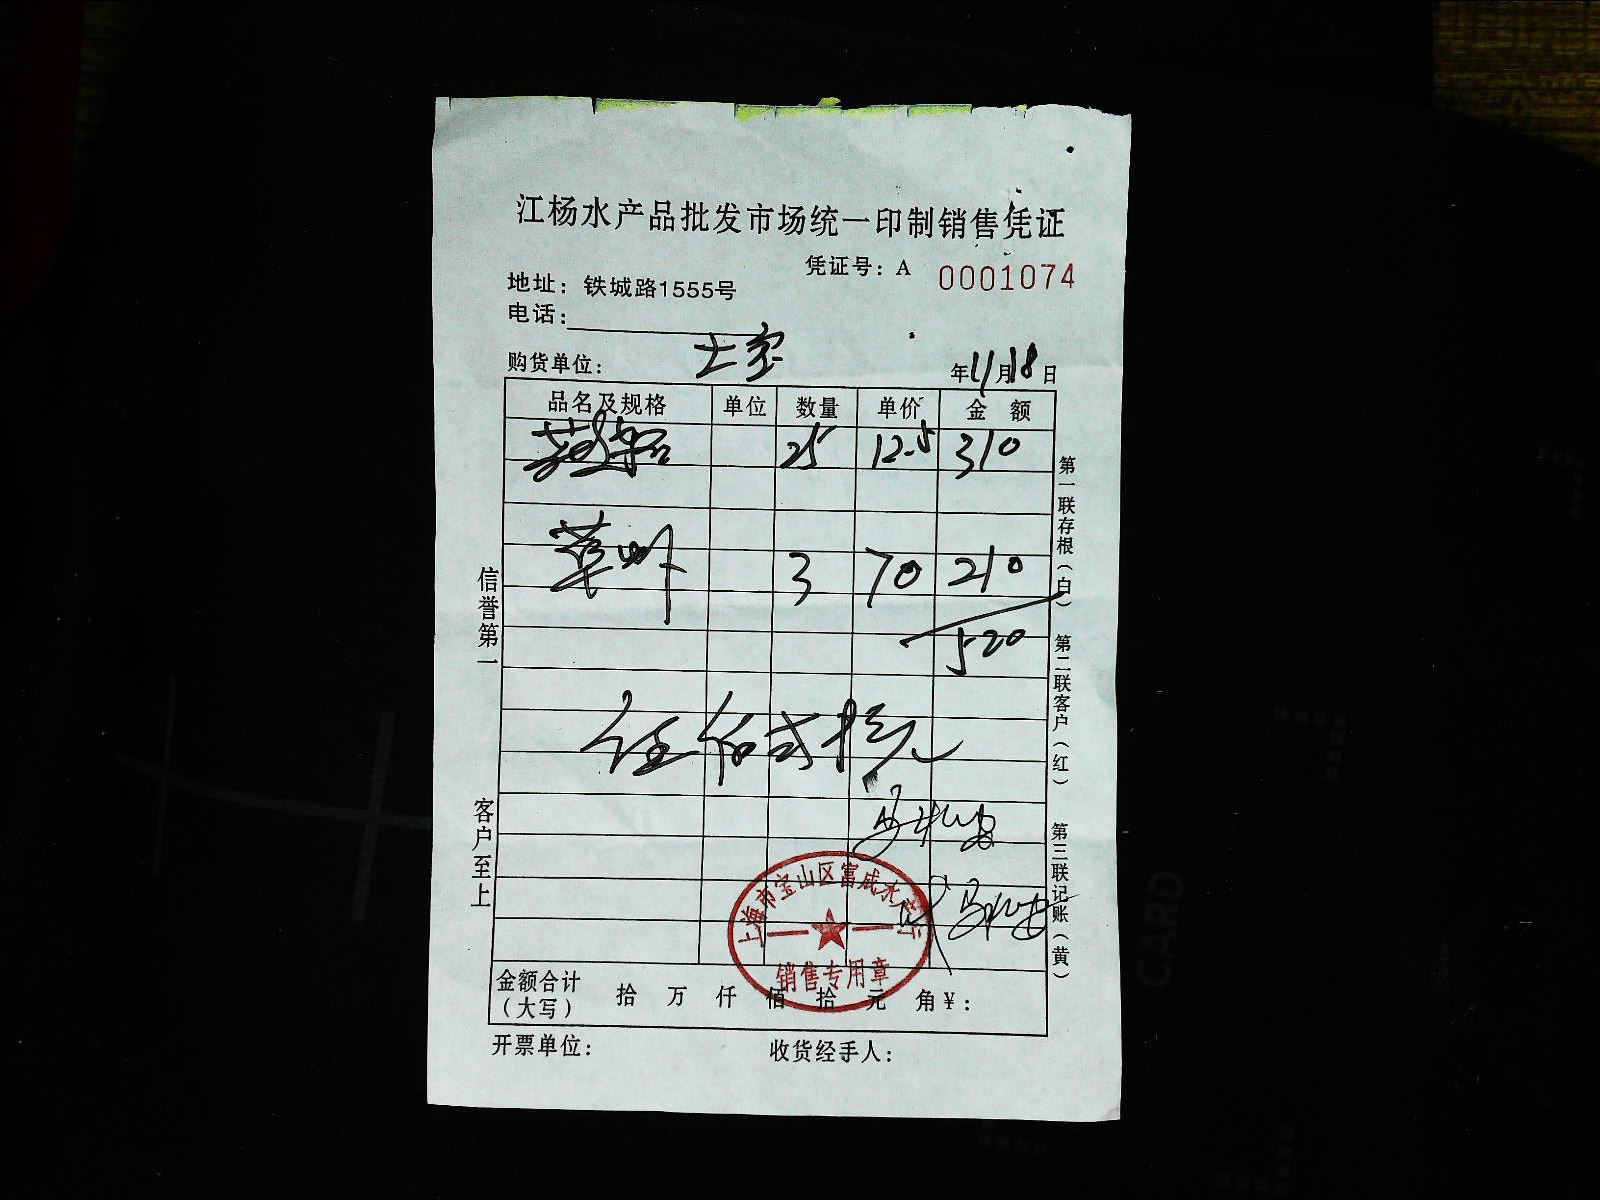 江杨水产品批发市场统一印制销售凭证
凭证号：A 0001074
地址：铁城路1555号
电话：
购货单位： 年11月18日
品名及规格 单位 数量 单价 金额
25 12.5 310
草虾 3 70 210
520
伍佰弍拾元
金额合计（大写） 拾 万 仟 佰 拾 元 角 ￥：
开票单位： 收货经手人：
信誉第一
客户至上
第一联存根（白） 第二联客户（红） 第三联记账（黄）
上海市宝山区富成水产行
销售专用章
CARD